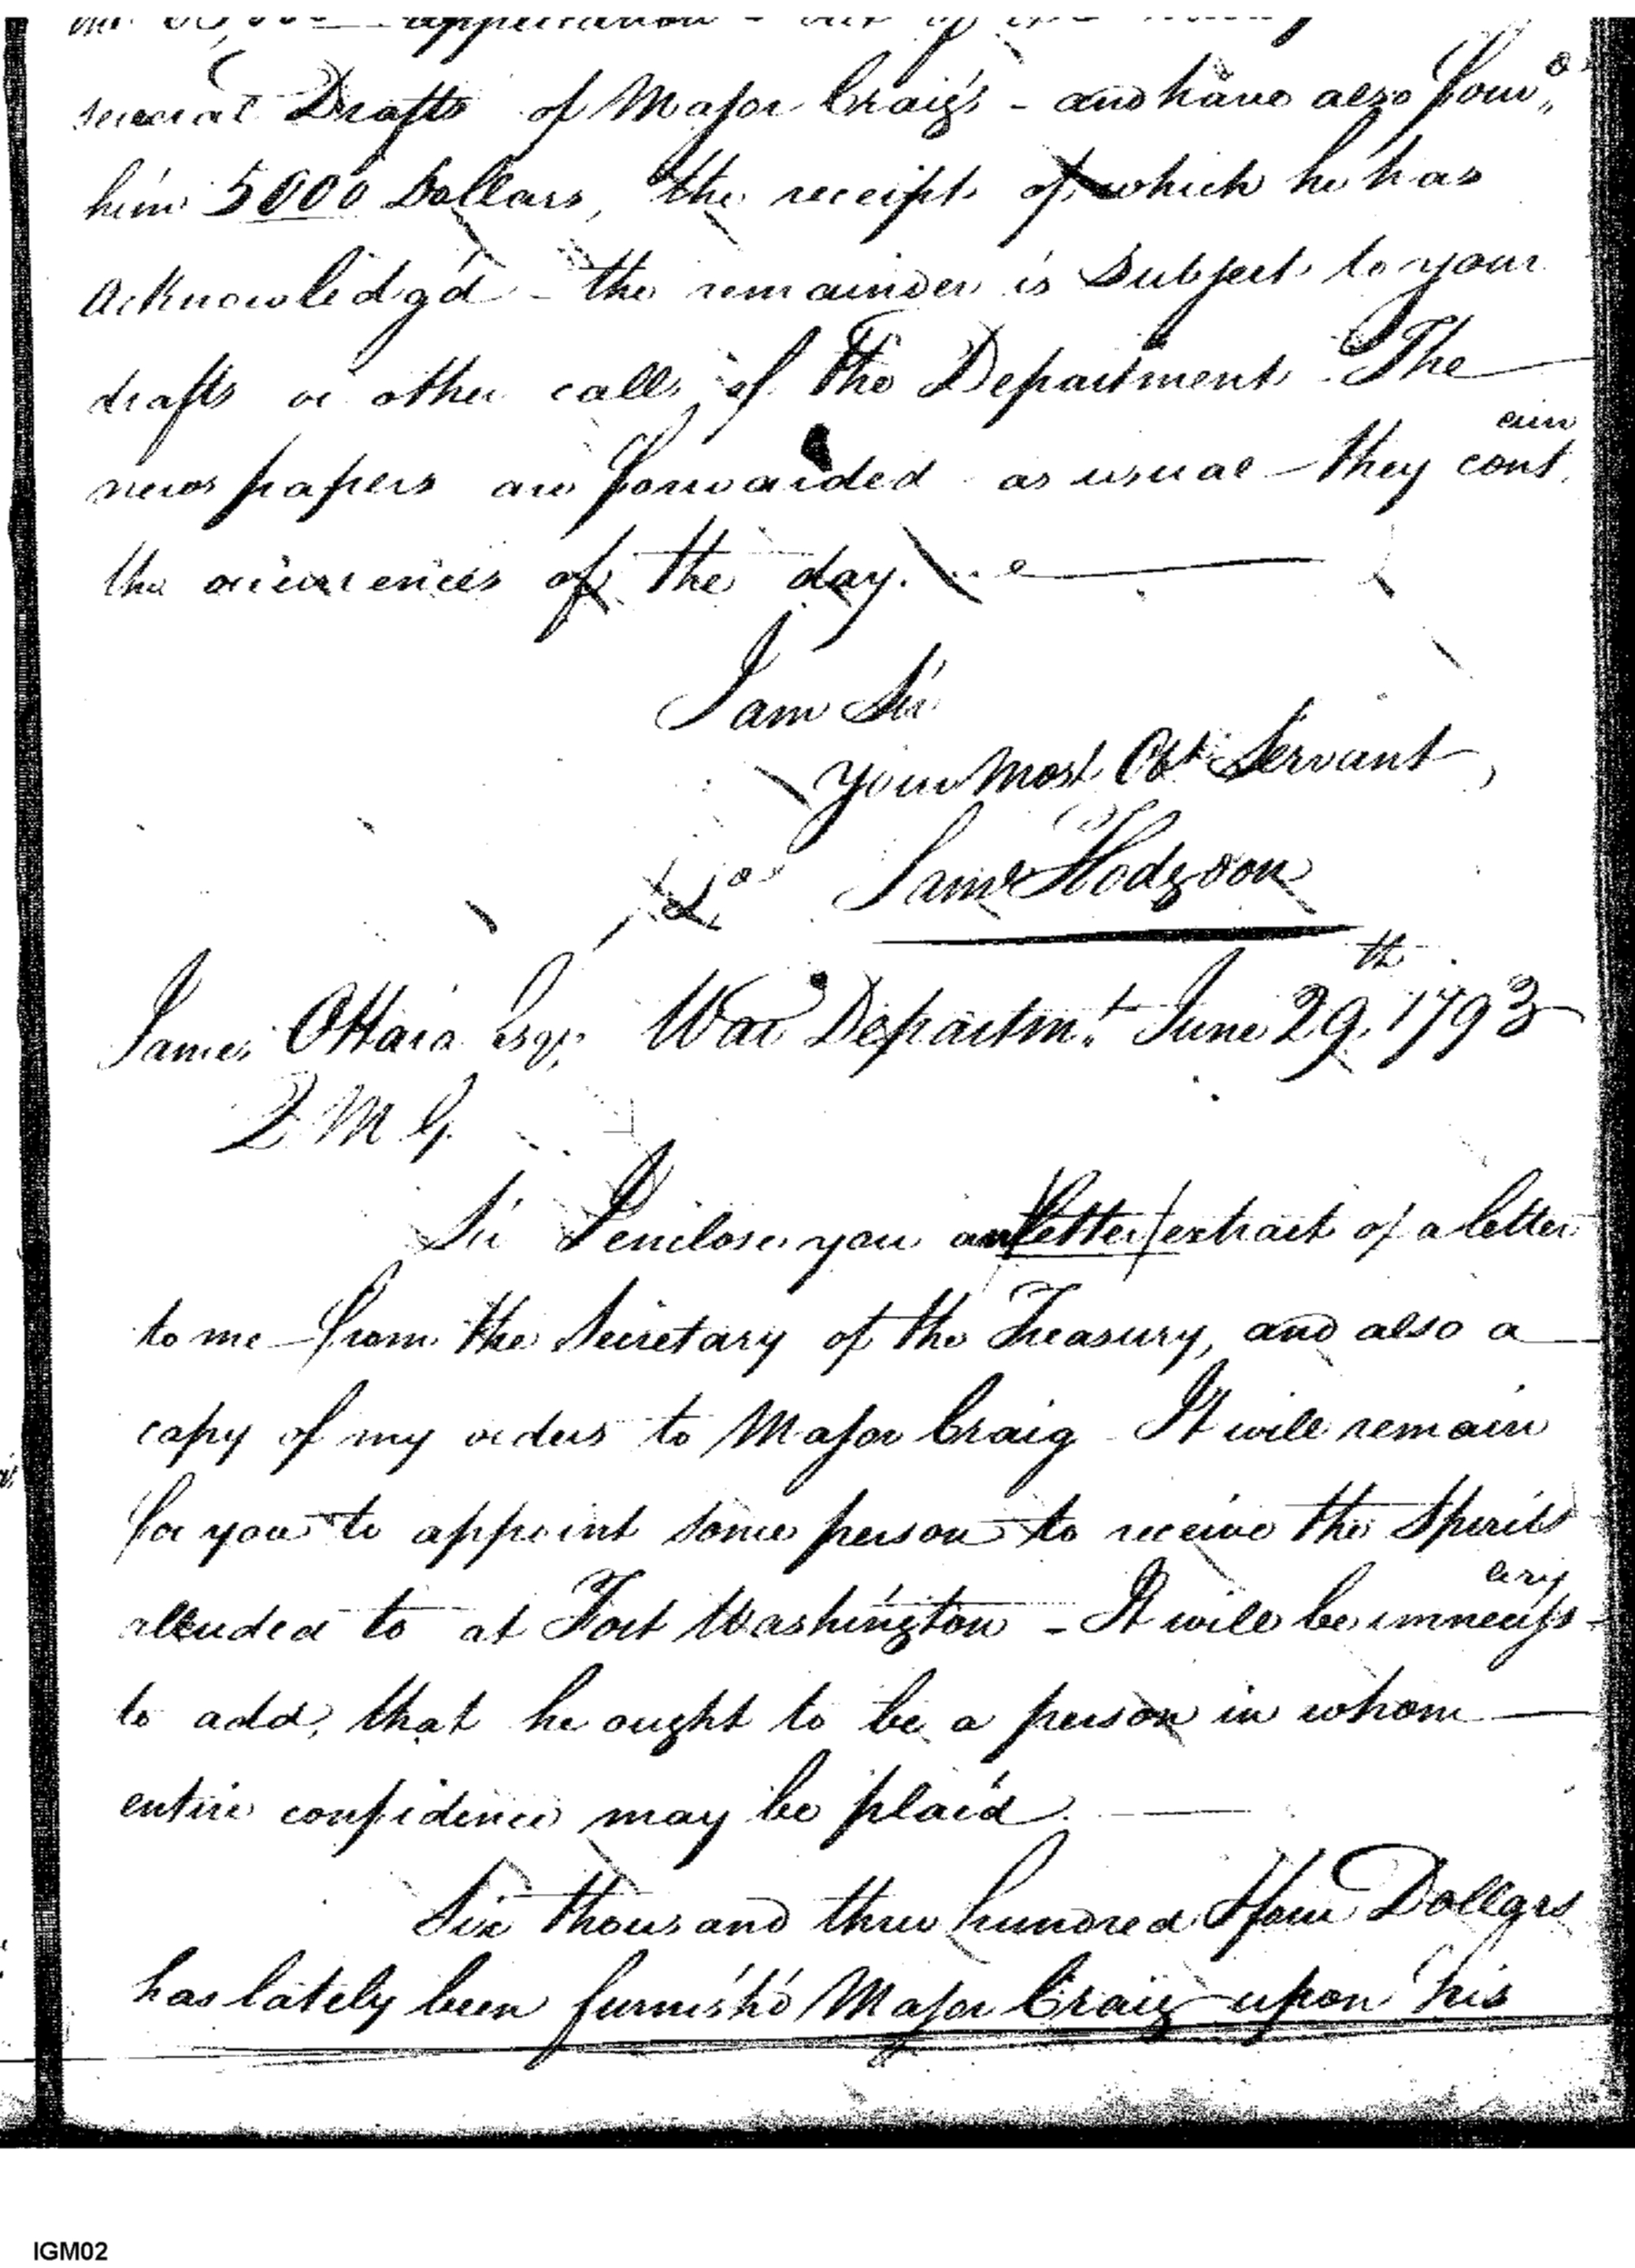 application - out of the
several Drafts of Major Craig's - and have also forw.d
him 5000 Dollars, the receipt of which he has
Acknowledg'd - the remainder is Subject to your
drafts or other calls of the Department. The
news papers are forwarded as usual - they contain
the occurrences of the day.
I am Sir
your most Obt Servant,
Saml Hodgdon
James OHara Esqr War Departm.t June 29.th 1793
Q M G.
Sir I enclose you an letter extract of a letter
to me from the Secretary of the Treasury, and also a
copy of my orders to Major Craig It will remain
for you to appoint some person to receive the Spirits
alluded to at Fort Washington - It will be unnecessary
to add, that he ought to be a person in whom
entire confidence may be plac'd.
Six thousand three hundred & four Dollars
has lately been furnish'd Major Craig upon his
IGM02